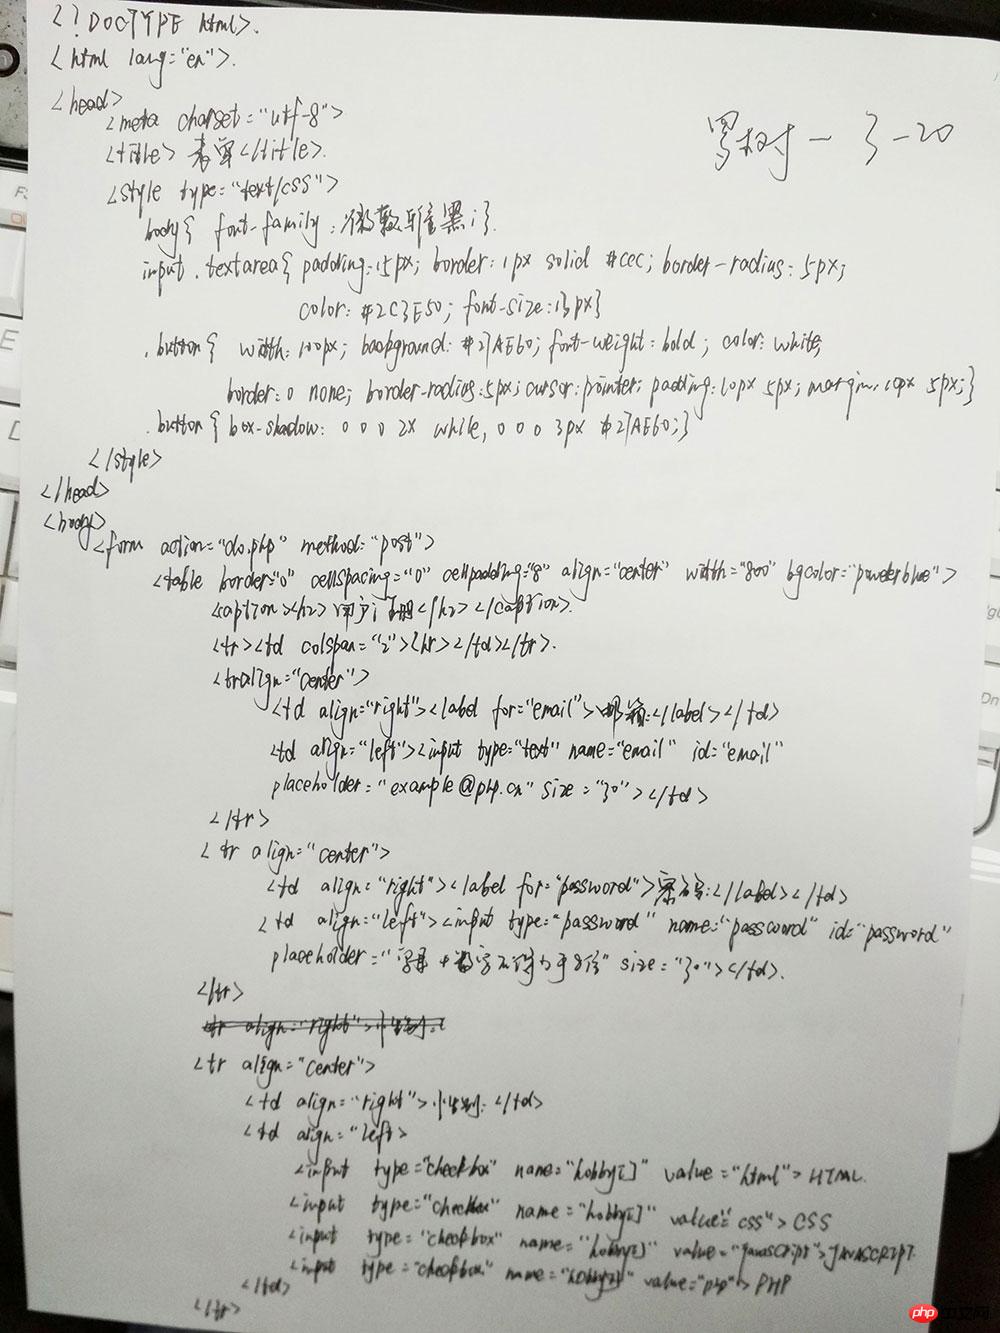 <!DOCTYPE html>.
<html lang="en">.
<head>
<meta charset="utf-8">
<title>表单</title>.
罗树-3-20
<style type="text/css">
body{ font-family:微软雅黑;}.
input.textarea{ padding:15px; border:1px solid #ccc; border-radius:5px;
color:#2C3E50; font-size:13px}
.button{ width:100px; background:#27AE60; font-weight:bold; color:white;
border:0 none; border-radius:5px; cursor:pointer; padding:10px 5px; margin:10px 5px;}
.button{ box-shadow: 0 0 0 2x while, 0 0 0 3px #27AE60;}
</style>
</head>
<body>
<form action="do.php" method="post">
<table border="0" cellspacing="0" cellpadding="8" align="center" width="800" bgcolor="powderblue">
<caption><h2>用户注册</h2></caption>.
<tr><td colspan="2"><hr></td></tr>.
<tralign="center">
<td align="right"><label for="email">邮箱:</label></td>
<td align="left"><input type="text" name="email" id="email"
placeholder="example@php.cn" size="30"></td>
</tr>
<tr align="center">
<td align="right"><label for="password">密码:</label></td>
<td align="left"><input type="password" name="password" id="password"
placeholder="字母+数字不得少于8位" size="30"></td>.
</tr>
<tr align="right">性别:<
<tr align="center">
<td align="right">性别:</td>
<td align="left>
<input type="checkbox" name="hobby[]" value="html">HTML.
<input type="checkbox" name="hobby[]" value="css">CSS
<input type="checkbox" name="hobby[]" value="javascript">JAVASCRIPT.
<input type="checkbox" name="hobby[]" value="php">PHP
</td>
</tr>
php中文网